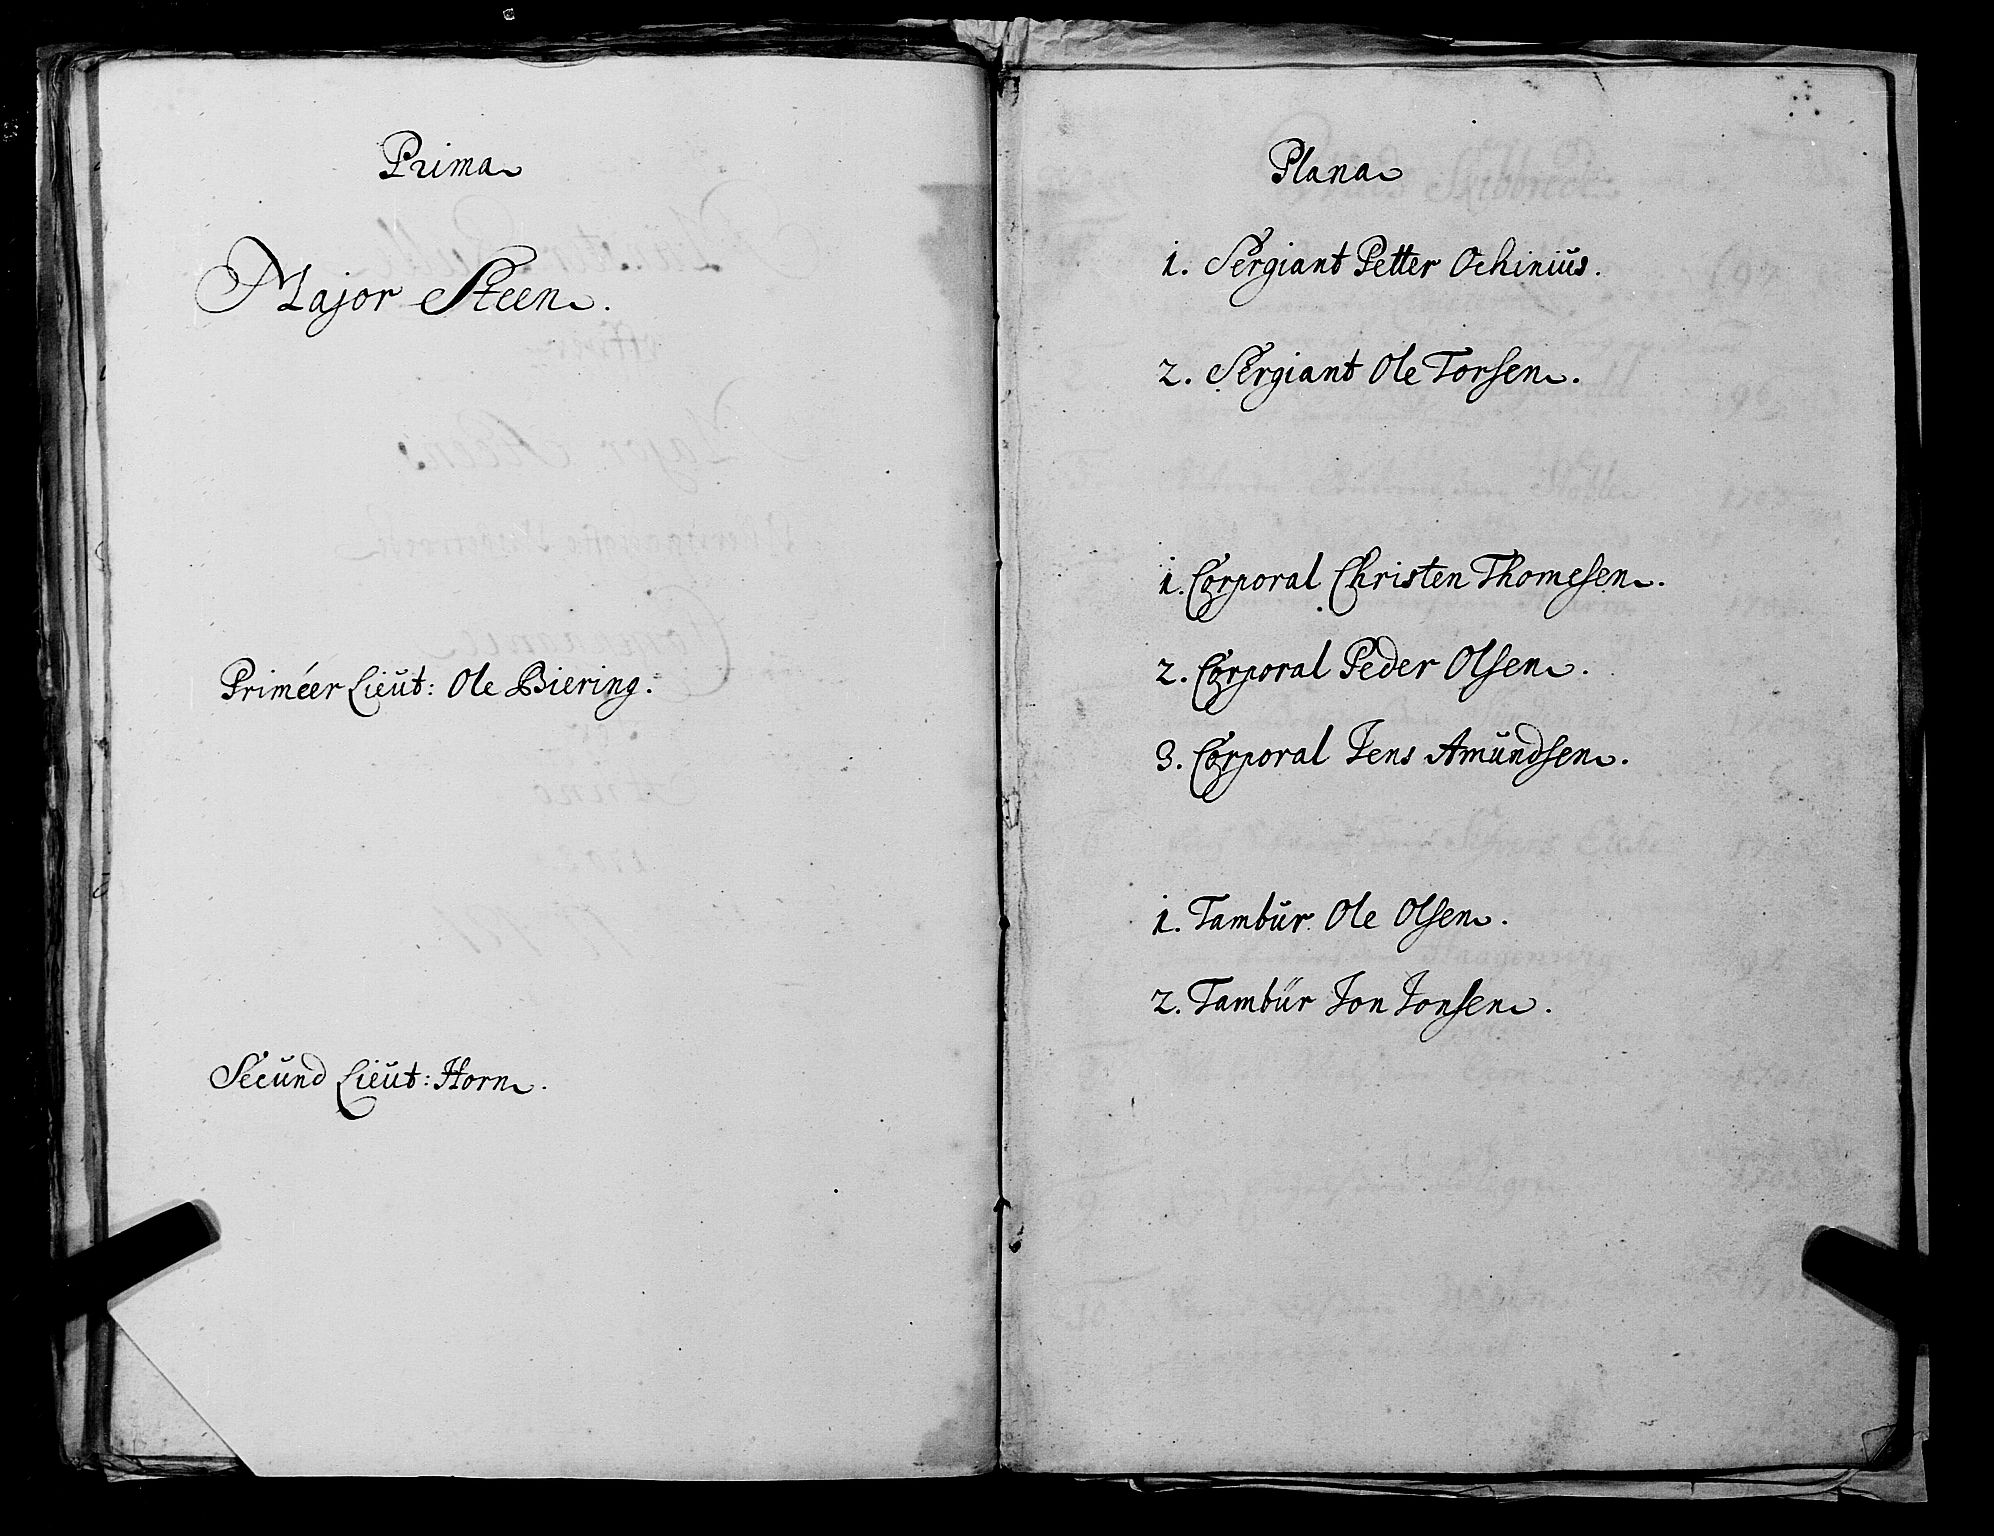 Prima
Major Steen.
Priméer Lieut: Ole Biering.
Secund Lieut: Horn.
Plana
1. Sergiant Petter Ochinius.
2. Sergiant Ole Torsen.
1. Corporal Christen Thomesen.
2. Corporal Peder Olsen.
3. Corporal Jens Amundsen.
1. Tambur Ole Olsen.
2. Tambur Jon Jonsen.